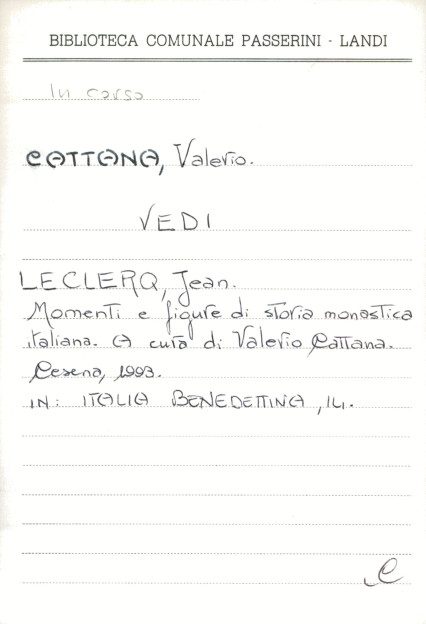 BIBLIOTECA COMUNALE PASSERINI - LANDI
In corso
CATTANA, Valerio.
VEDI
LECLERQ, Jean.
Momenti e figure di storia monastica
italiana. A cura di Valerio Cattana.
Cesena, 1993.
IN: ITALIA BENEDETTINA, 14.
C